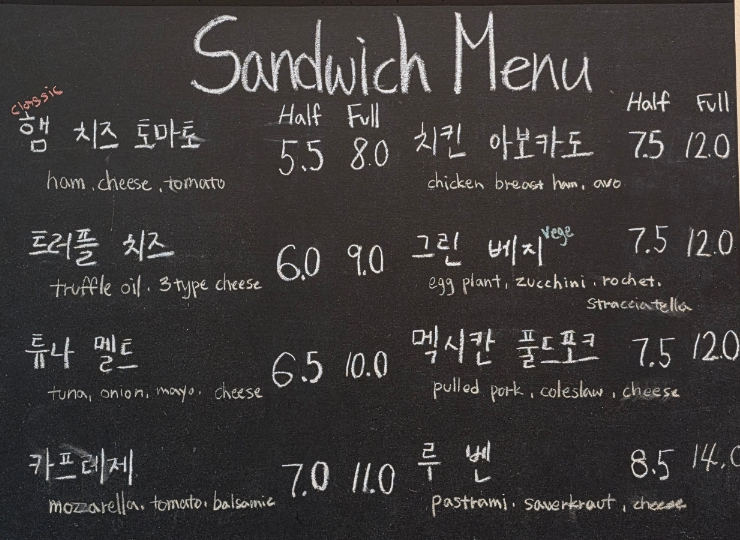 Sandwich Menu
Classic
Half Full
햄 치즈 토마토 5.5 8.0
ham, cheese, tomato
트러플 치즈 6.0 9.0
truffle oil, 3type cheese
튜나 멜트 6.5 10.0
tuna, onion, mayo, cheese
카프레제 7.0 11.0
mozzarella, tomato, balsamic
Half Full
치킨 아보카도 7.5 12.0
chicken breast ham, avo
그린 베지 vege 7.5 12.0
egg plant, zucchini, rochet,
stracciatella
멕시칸 풀드포크 7.5 12.0
pulled pork, coleslaw, cheese
루벤 8.5 14.0
pastrami, saverkraut, cheese